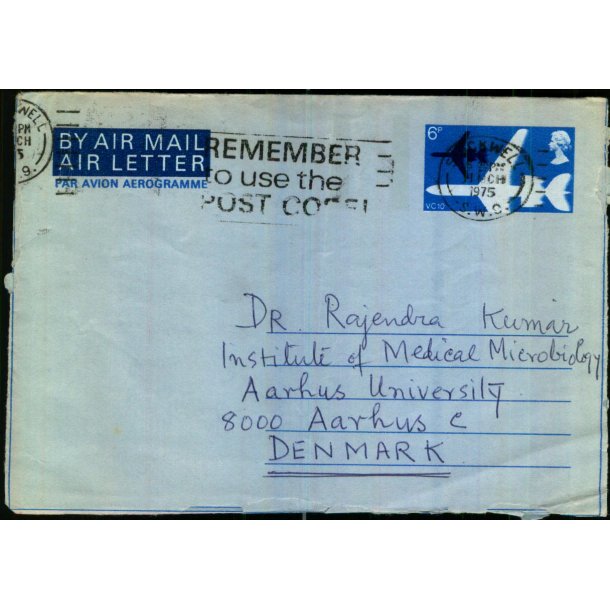 BY AIR MAIL
AIR LETTER
PAR AVION AEROGRAMME
REMEMBER
to use the
POST CODE!
6P
VC10
1975
S.W.9.
DR. Rajendra Kumar
Institute of Medical Microbiology
Aarhus University
8000 Aarhus C
DENMARK